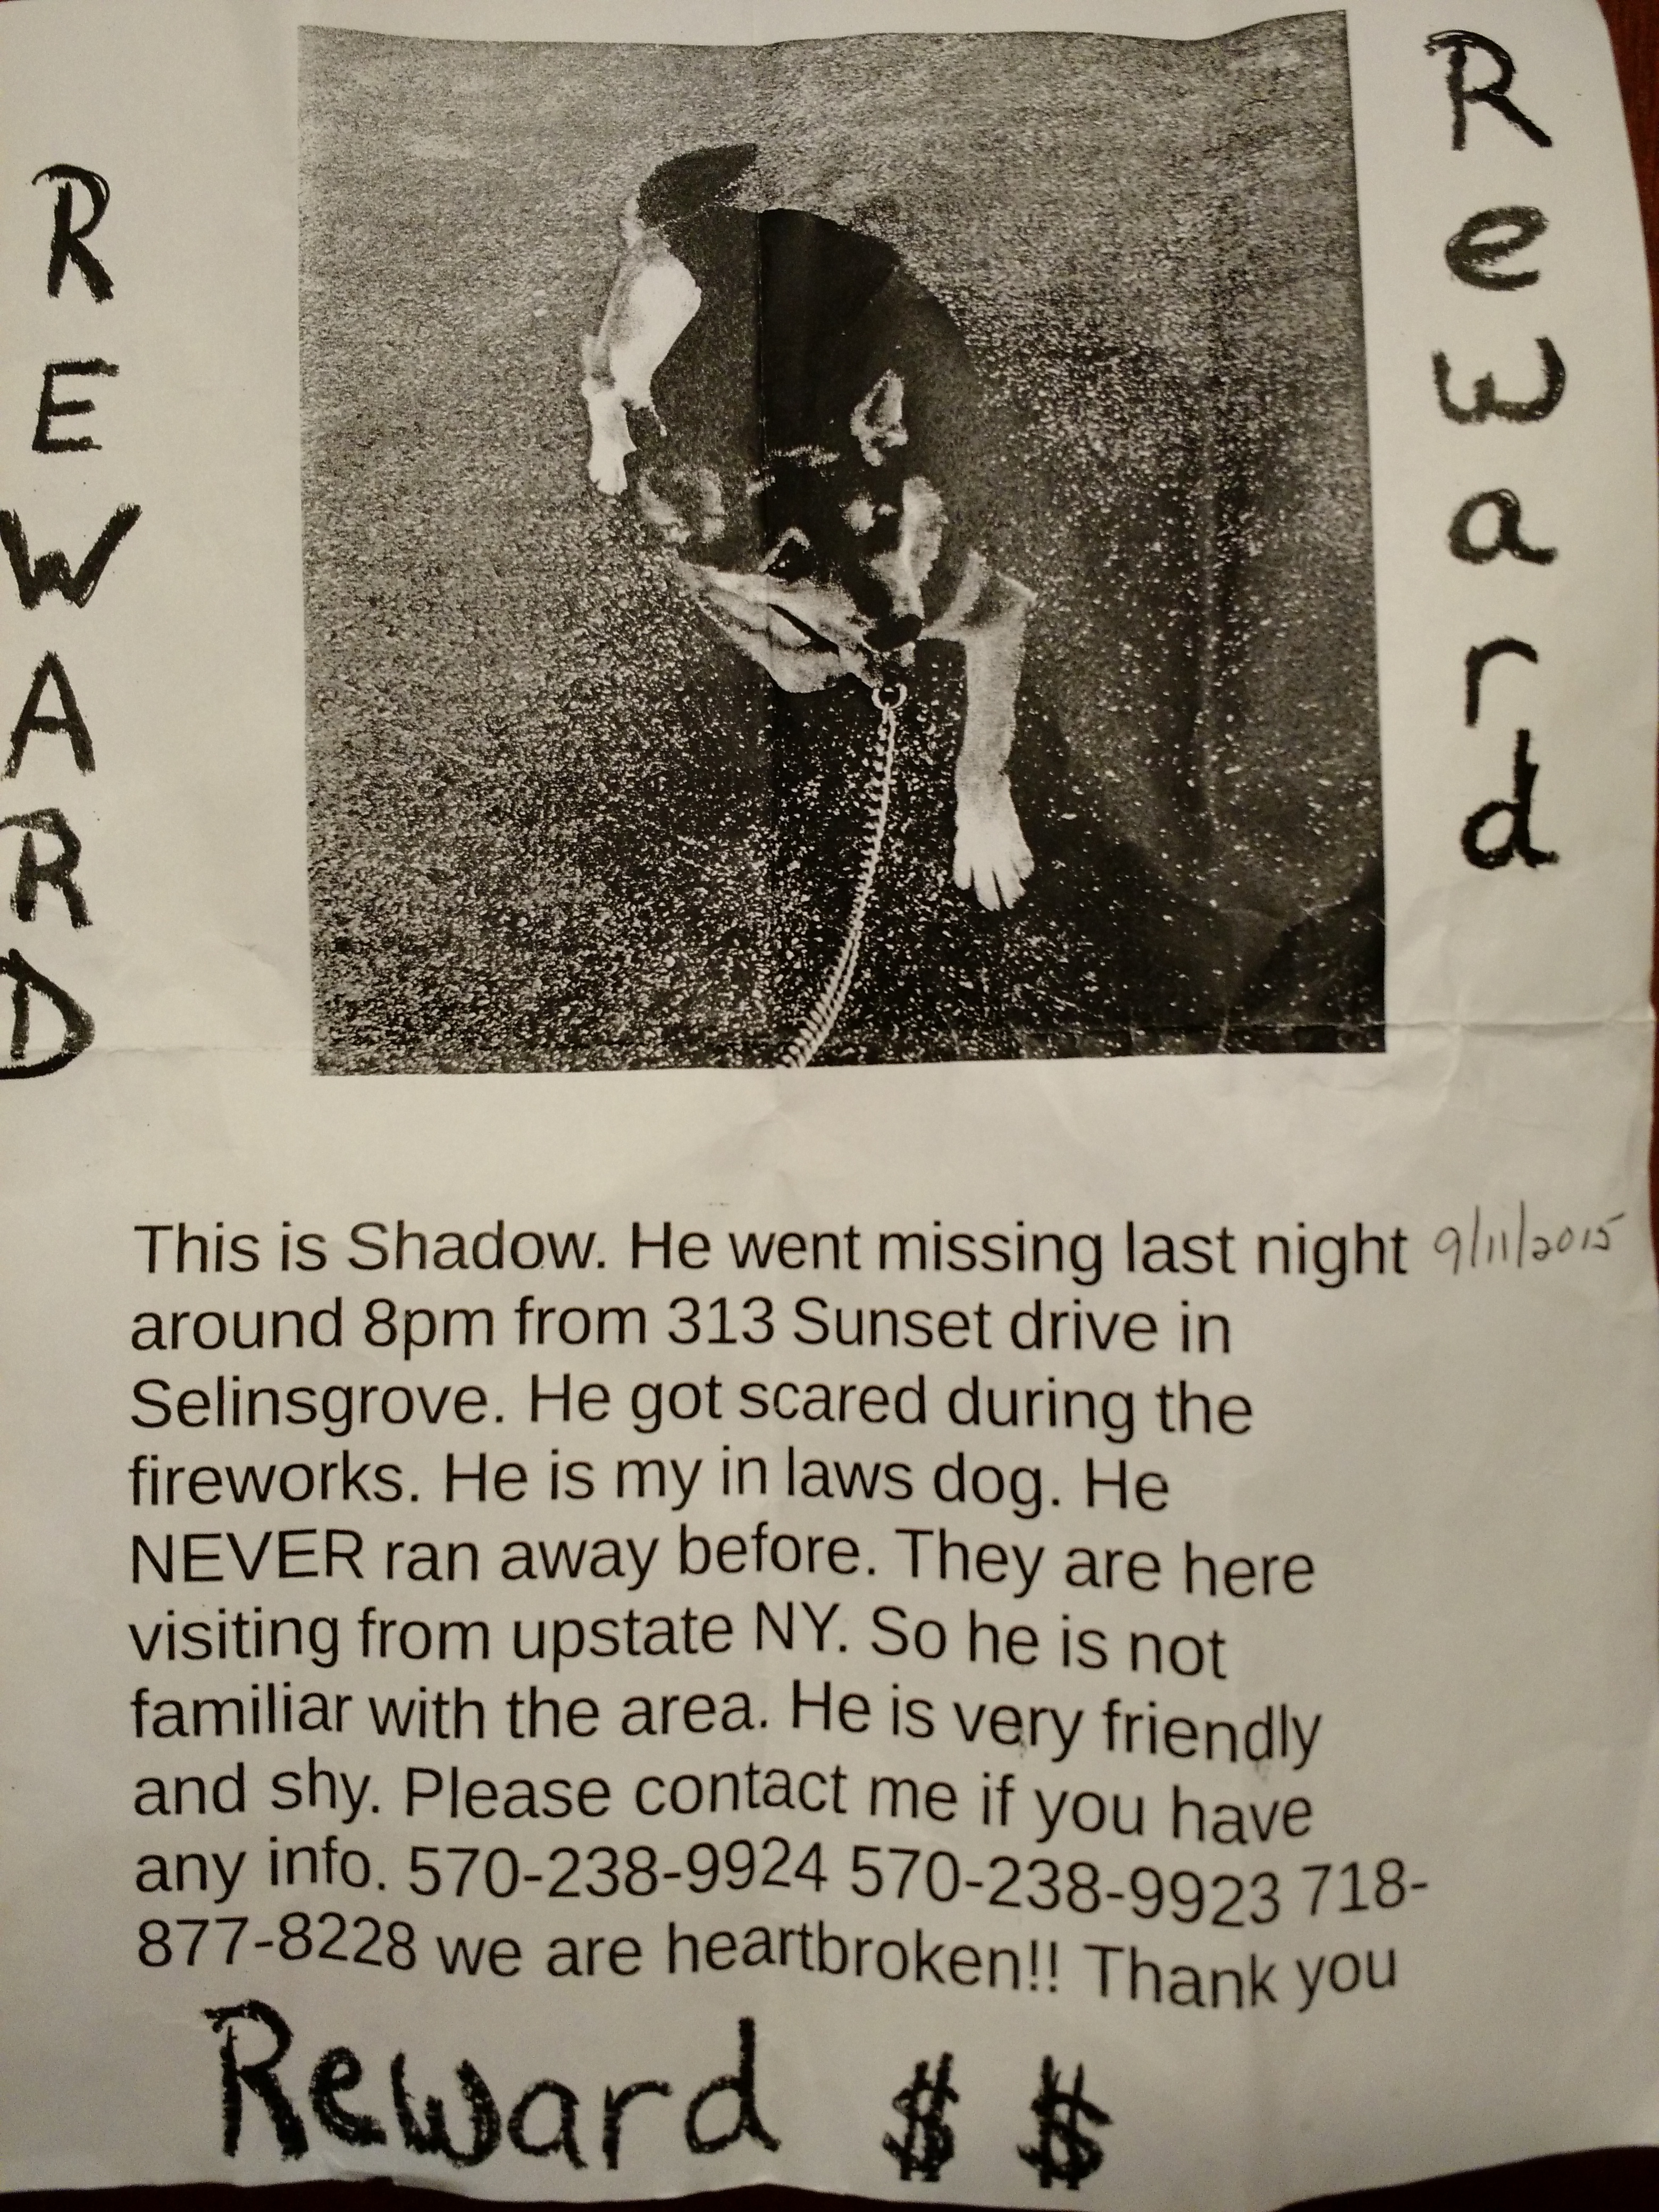 REWARD
Reward
This is Shadow. He went missing last night 9/11/2015
around 8pm from 313 Sunset drive in
Selinsgrove. He got scared during the
fireworks. He is my in laws dog. He
NEVER ran away before. They are here
visiting from upstate NY. So he is not
familiar with the area. He is very friendly
and shy. Please contact me if you have
any info. 570-238-9924 570-238-9923 718-
877-8228 we are heartbroken!! Thank you
Reward $ $